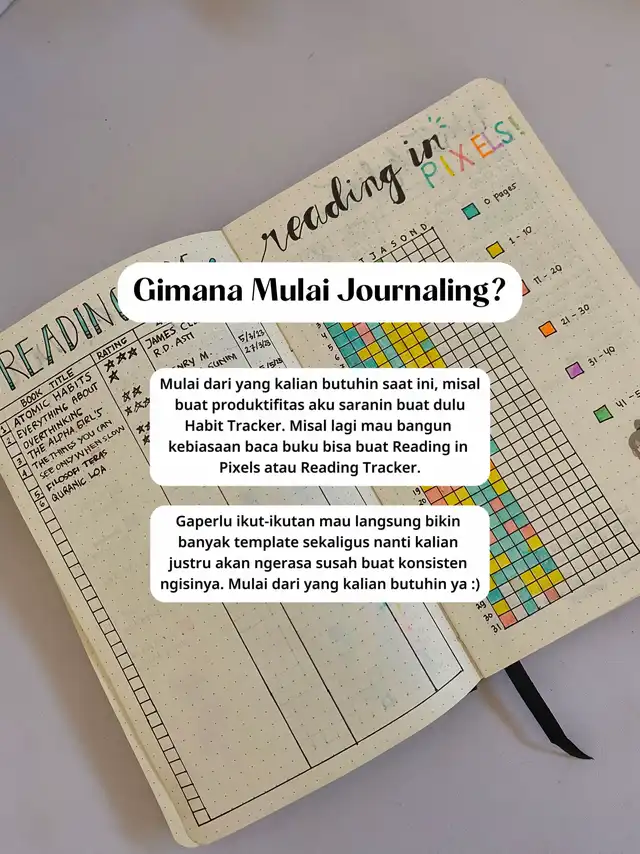 reading in
PIXELS!
0 pages
J A S O N D
1 - 10
Gimana Mulai Journaling?
11 - 20
READING
21 - 30
BOOK TITLE
RATING
1 ATOMIC HABITS
JAMES
5/3/23
2 EVERYTHING ABOUT
R.D. ASTI
27/3/23
OVERTHINKING
HENRY M.
3 THE ALPHA GIRL'S
4 THE THINGS YOU CAN
SEE ONLY WHEN SLOW
5 FILOSOFI TERAS
6 QURANIC LOA
31 - 40
41 - 5
Mulai dari yang kalian butuhin saat ini, misal
buat produktifitas aku saranin buat dulu
Habit Tracker. Misal lagi mau bangun
kebiasaan baca buku bisa buat Reading in
Pixels atau Reading Tracker.
Gaperlu ikut-ikutan mau langsung bikin
banyak template sekaligus nanti kalian
justru akan ngerasa susah buat konsisten
ngisinya. Mulai dari yang kalian butuhin ya :)
5
6
19
20
29
30
31